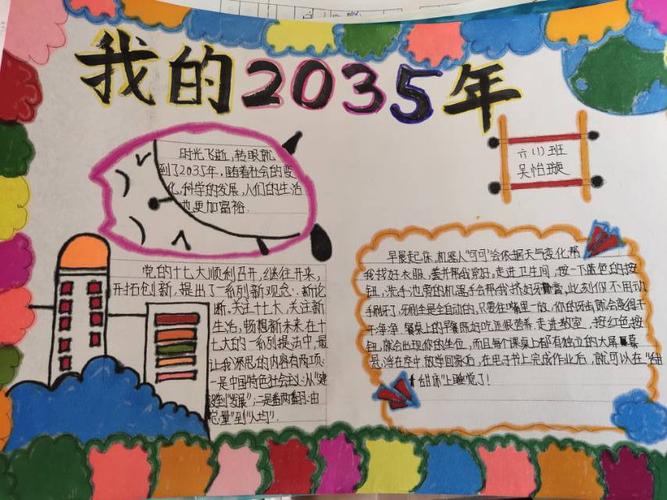 我的2035年
六(1)班
吴怡璇
时光飞逝,转眼就
到了2035年,随着社会的变
化,科学的发展,人们的生活
也更加富裕
党的十七大顺利召开,继往开来,
开拓创新,提出了一系列新观念、新论
断,关注十七大,关注新
生活,畅想新未来在十
七大的一系列提法中,最
让我深思的内容有两项:
一是中国特色社会主义:从"建
到"发展";二是看两番:由
总量"到"人均".
早晨起床,机器人"可可"会依据天气变化帮
我找好衣服,叠并帮我穿好,走进卫生间,按一下墙壁的按
钮,洗手池旁的机器手会帮我挤好牙膏,此刻你不用动
手刷牙,牙刷全是全自动的,只要在嘴里一放,你的牙齿就会变得干
干净净,餐桌上的早餐既好吃并很营养.走进教室,按红色按
钮,就会出现你的座位,而且每个课桌上都有独立的大屏幕
易.当在空中放学回家后,在电子书上完成作业后,就可以在"
甜床"上睡觉了!